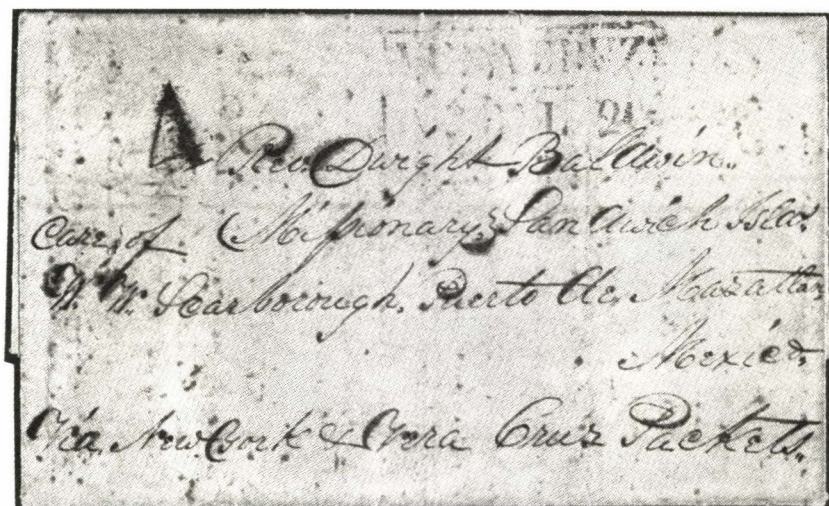 Rev. Dwight Baldwin.
Care of Missionary, Sandwich Isla.
W. W. Scarborough. Puerto de. Mazatlan
Mexico.
Via New York & Vera Cruz Packets.